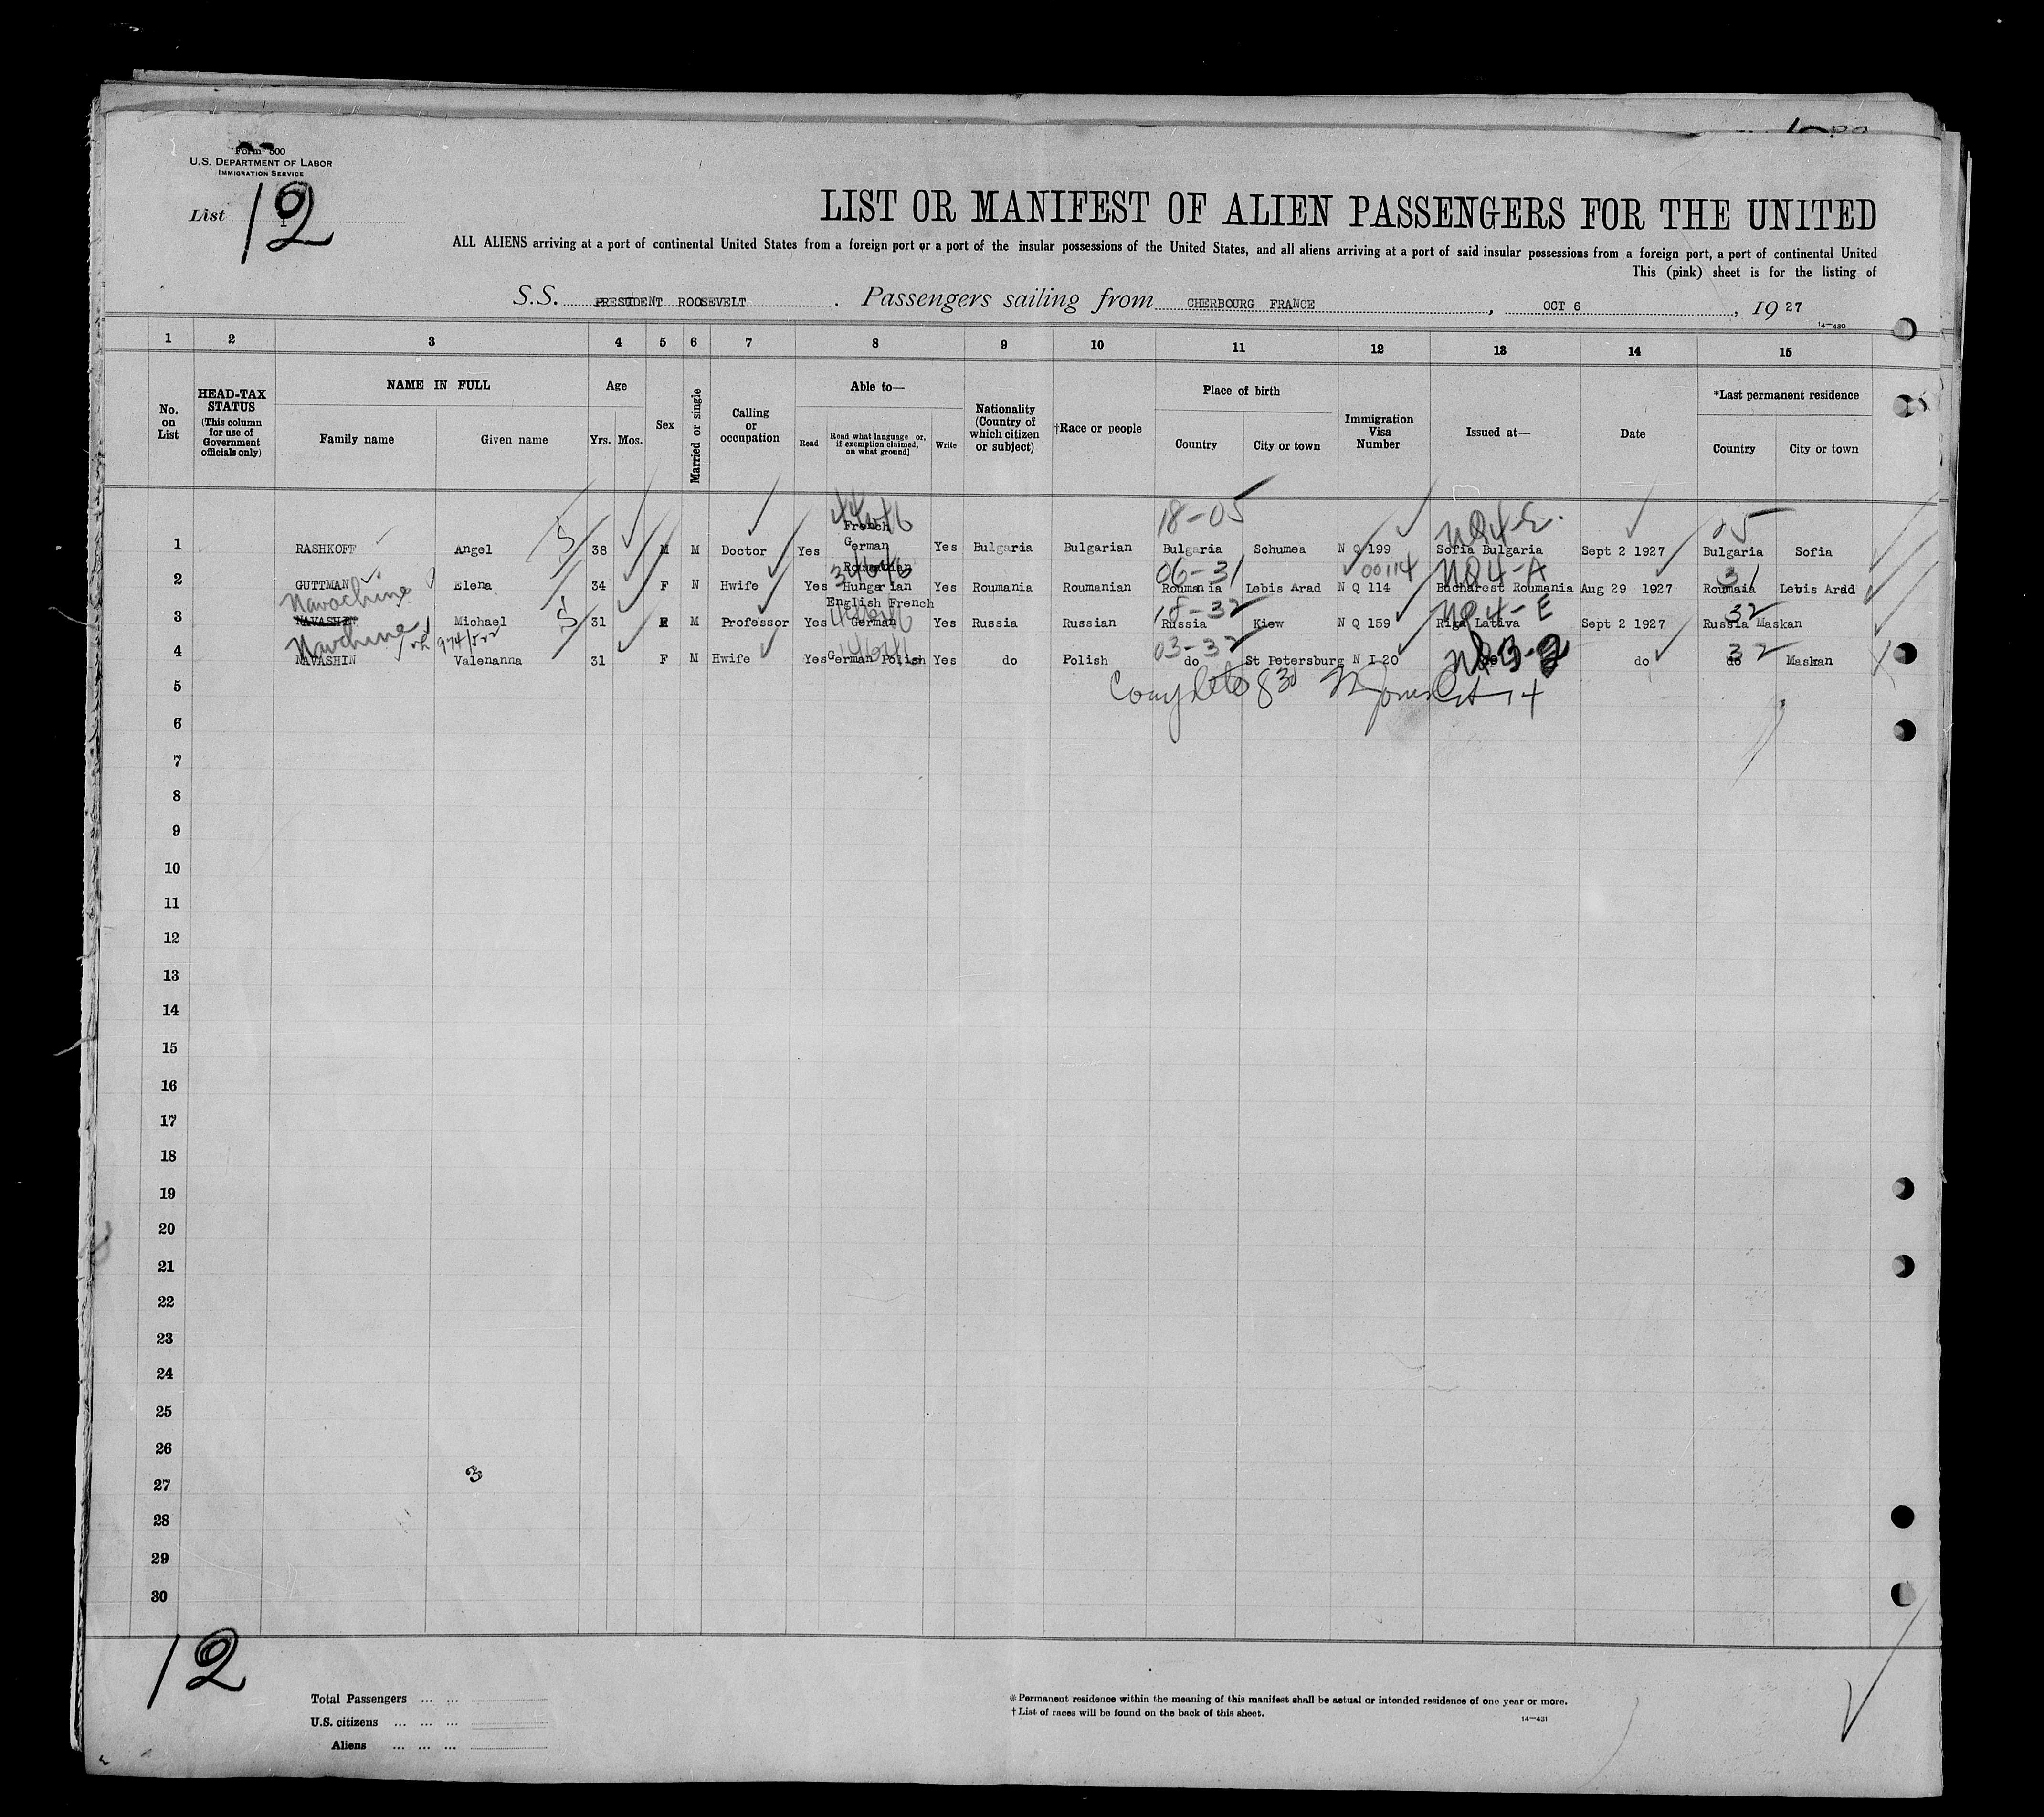 Form 500
U.S. DEPARTMENT OF LABOR
IMMIGRATION SERVICE
List 12
LIST OR MANIFEST OF ALIEN PASSENGERS FOR THE UNITED
ALL ALIENS arriving at a port of continental United States from a foreign port or a port of the insular possessions of the United States, and all aliens arriving at a port of said insular possessions from a foreign port, a port of continental United
This (pink) sheet is for the listing of
S.S. PRESIDENT ROOSEVELT . Passengers sailing from CHERBOURG FRANCE , OCT 6 , 19 27
14—430
1 2 3 4 5 6 7 8 9 10 11 12 13 14 15
No. on List
HEAD-TAX STATUS (This column for use of Government officials only)
NAME IN FULL
Family name Given name
Age
Yrs. Mos.
Sex
Married or single
Calling or occupation
Able to—
Read Read what language [or, if exemption claimed, on what ground] Write
Nationality (Country of which citizen or subject)
†Race or people
Place of birth
Country City or town
Immigration Visa Number
Issued at—
Date
*Last permanent residence
Country City or town
18-05 NQ4-E. 05
1 RASHKOFF Angel 38 M M Doctor Yes French German Yes Bulgaria Bulgarian Bulgaria Schumea N Q 199 Sofia Bulgaria Sept 2 1927 Bulgaria Sofia
06-31 00114 NQ4-A 31
2 GUTTMAN Elena 34 F N Hwife Yes Roumanian Hungarian Yes Roumania Roumanian Roumania Lebis Arad N Q 114 Bucharest Roumania Aug 29 1927 Roumaia Lebis Arad
Navachine 18-32 NQ4-E 32
3 NAVASHIN Michael 31 M Professor Yes English French German Yes Russia Russian Russia Kiew N Q 159 Riga Lativa Sept 2 1927 Russia Maskan
Navchine 03-32 32
4 NAVASHIN Valenanna 31 F M Hwife Yes German Polish Yes do Polish do St Petersburg N I 20 do do Maskan
5
6
7
8
9
10
11
12
13
14
15
16
17
18
19
20
21
22
23
24
25
26
3
27
28
29
30
12
Total Passengers ... ...
U.S. citizens ... ... ...
Aliens ... ... ...
* Permanent residence within the meaning of this manifest shall be actual or intended residence of one year or more.
† List of races will be found on the back of this sheet.
14—431